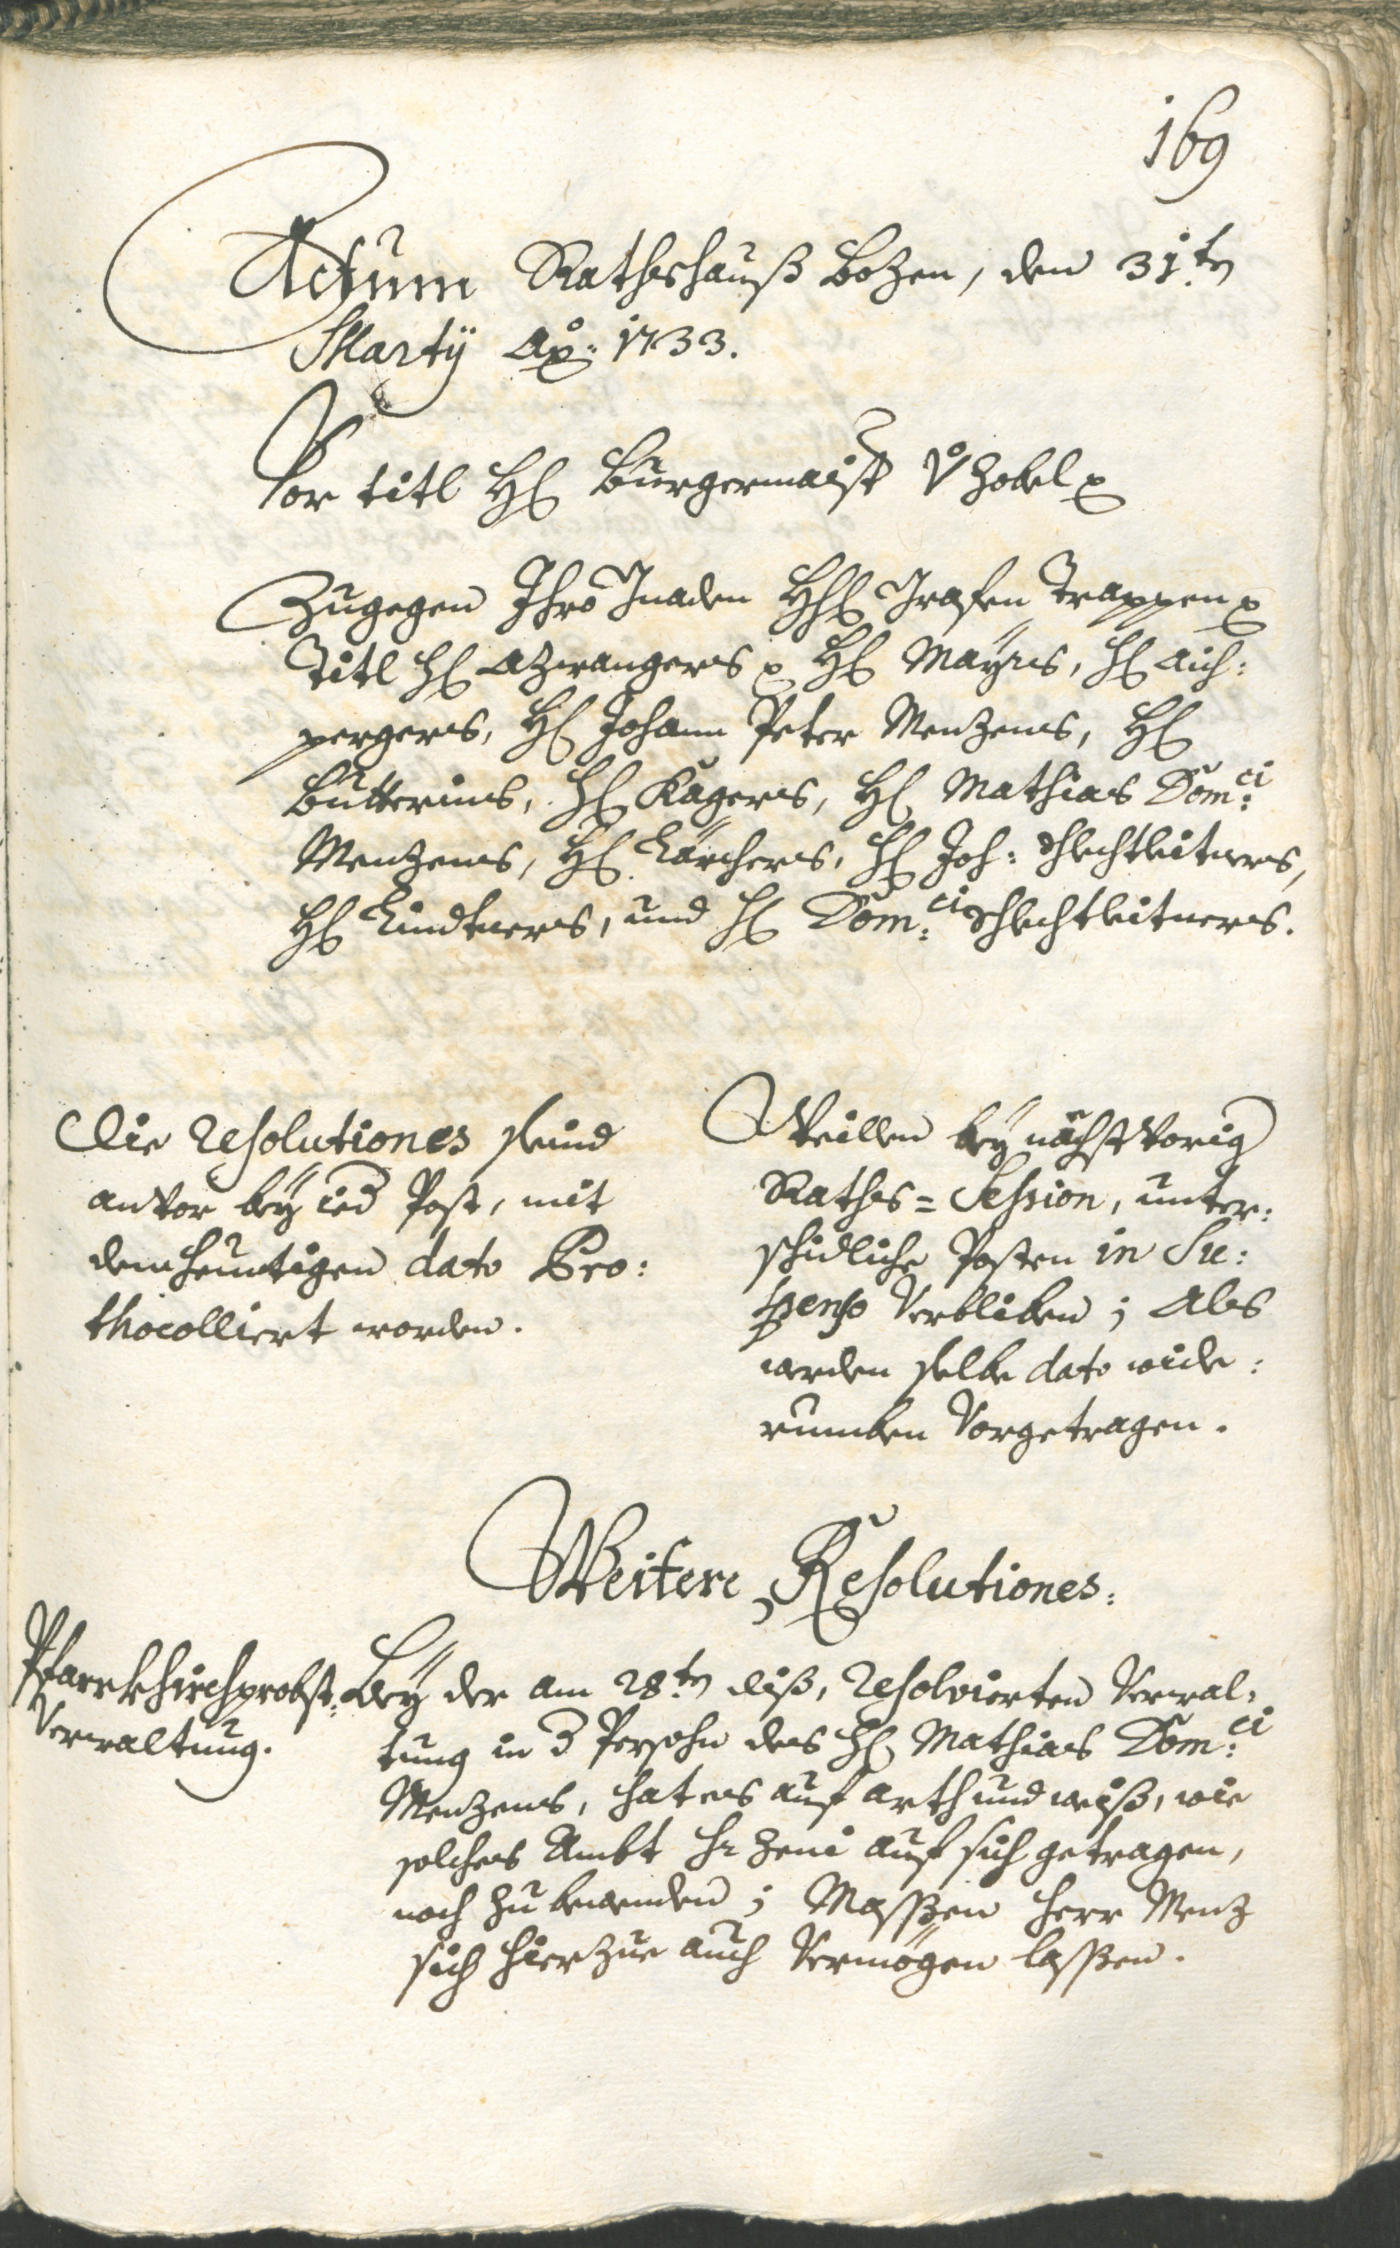 169
Actum Rathshauß Bozen, den 31.tn
Martÿ Ao: 1733.
Vor titl H Burgermaistr v Zobel
Zugegen Ihro Gnaden HH Grafen Trappen
Titl H Azwangers H Maÿrs, H Aich:
pergers, H Johann Peter Menzens, H
Butterins, H Kagers, H Mathias Dom:ci
Menzens, H Lärchers, H Joh: Schlechtleitners,
H Lindtners, und H Dom:ci Schlechtleitners.
Die Resolutiones seind
anvor beÿ ied Post, mit
dem heuntigen dato Pro:
thocolliert worden.
Weillen beÿ nächst Vorig
Raths=Session, unter:
schidliche Posten in Su:
spenso Verbliben; Als
werden selbe dato wide:
rumben Vorgetragen.
Weitere Resolutiones:
Pfarrkhirchprobst:
Verwaltung.
Beÿ der am 28.tn diß, Resolvierten Verwal:
tung in d Persohn des H Mathias Dom:ci
Menzens, hat es auf arth und weiß, wie
solches Ambt Hr Zeni auf sich getragen,
noch zu bewenden; Massen Herr Menz
sich hierzue auch Vermögen lassen.